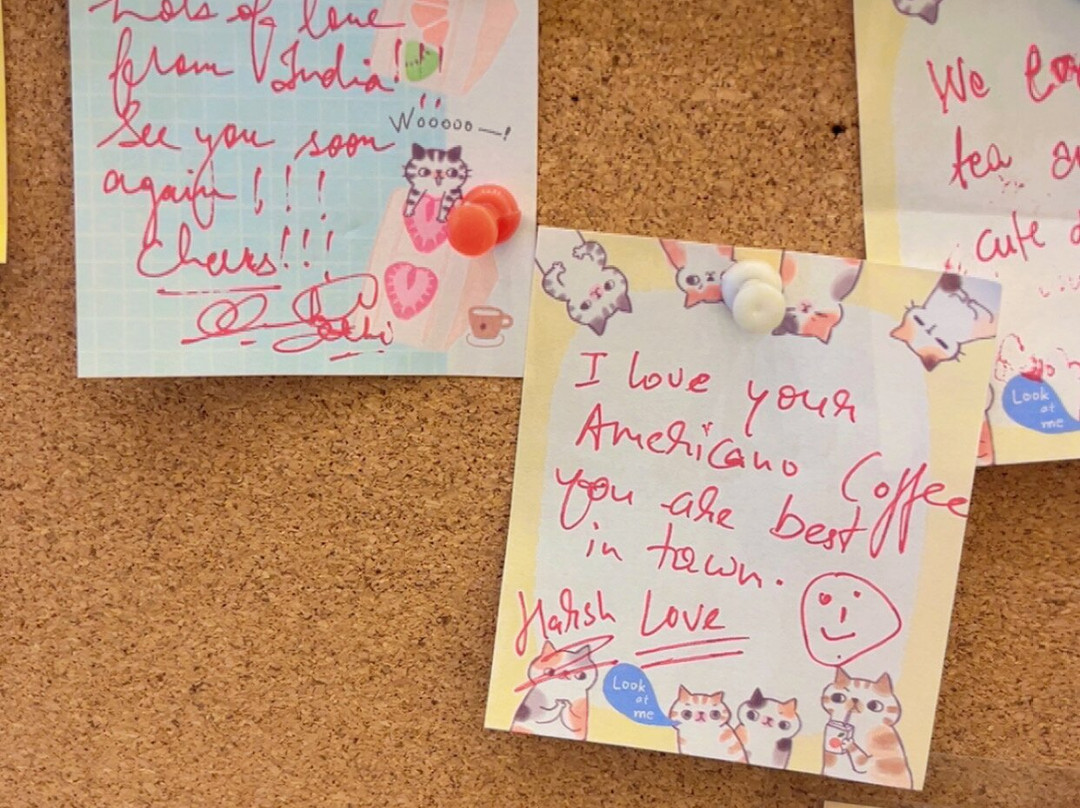 Lots of love
from India!!
Wooooo—!
See you soon
again!!!
Cheers!!!
I love your
Americano Coffee
You are best
in town.
Harsh Love
Look
at
me
We
tea
cute
Look
at
me